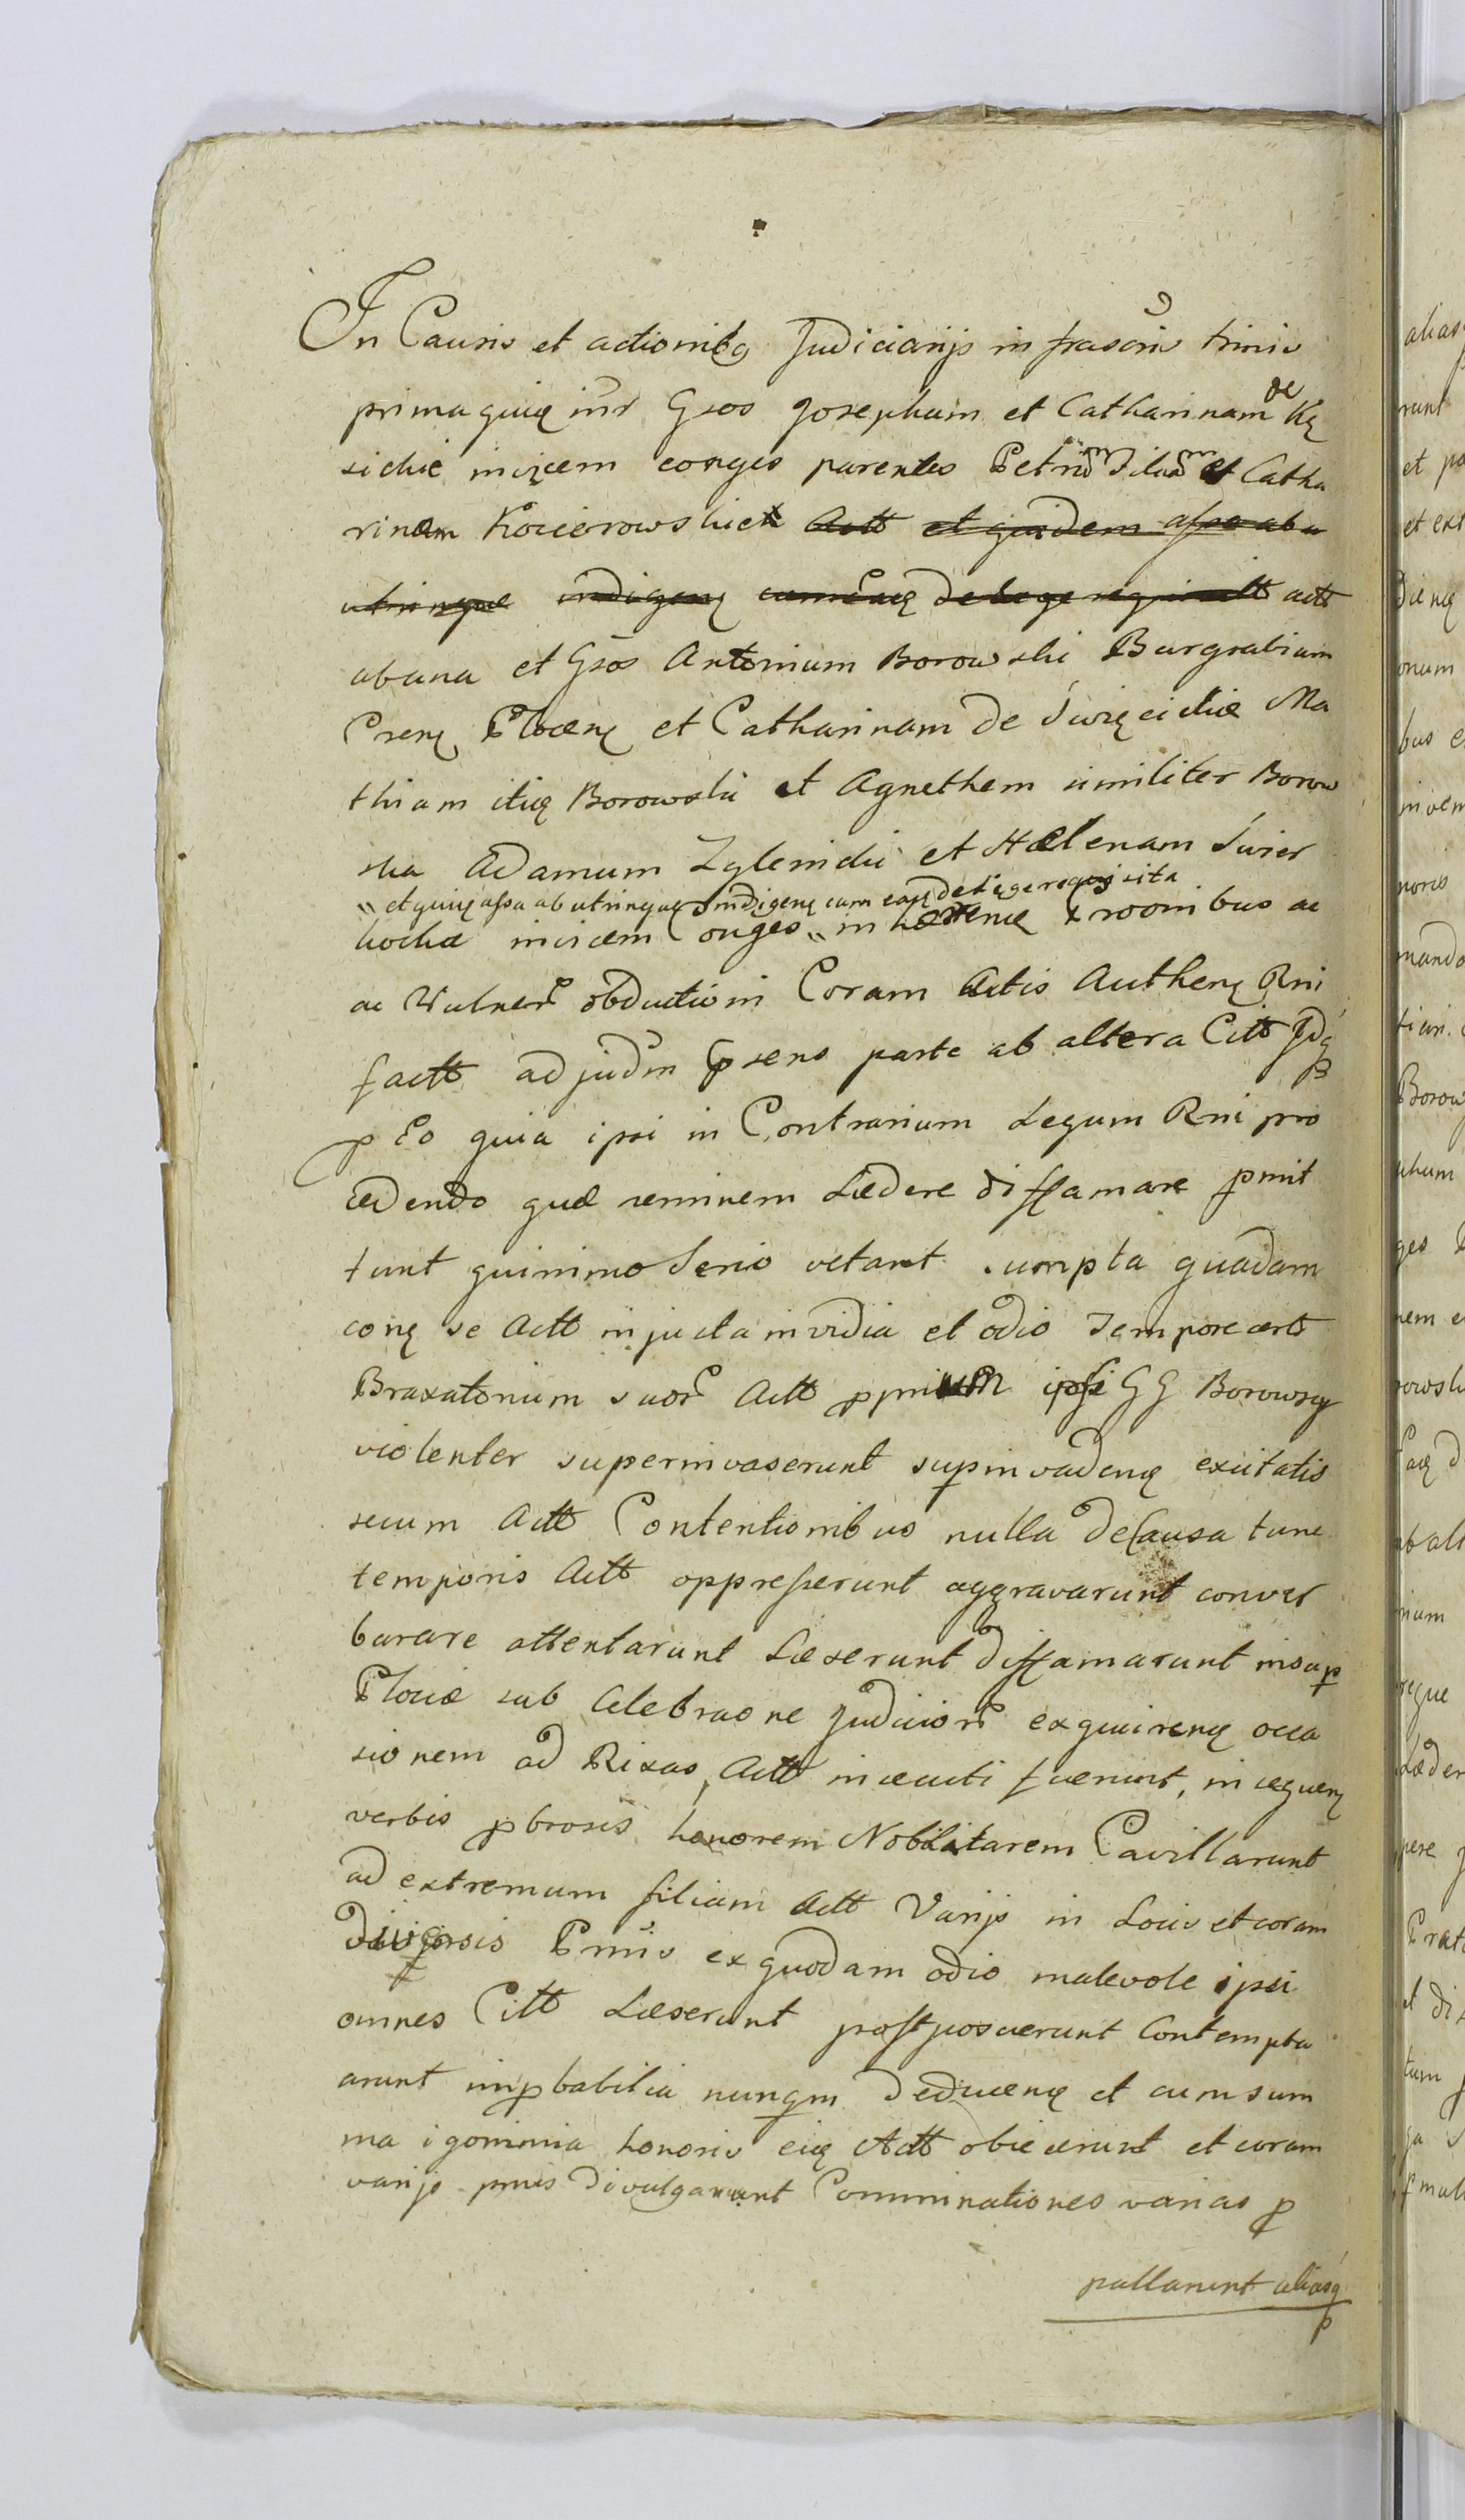 In Causis et actionibq Judiciarijs infrascriis trinis
prima quię intr Gsos Josephum et Catharinam de Kę
sickie invicem conges parentes Petrum Filium et Catha
rinam Kocierowskich Actt et quidem assa ab u
utrinque indigenę cumeaę de lege requisitt actt
abuna et Gsos Antonium Borowski Burgrabium
Crenę Plocenę et Catharinam de Święcickie Ma
thiam itię Borowski et Agnethem similiter Borow
ska Adamum Zglenicki et Hælenam Świer
„ et quię assa ab utrinque indigenę cum eaę de lege requisita
kockie invicem Conges „ inhærenę xroonibus ac
ac Vulner obductioni Coram Actis Authenę Rni
factt ad judm psens parte ab altera Citt Idq
p Eo quia ipsi in Contrarium Legum Rni pro
cedendo quæ neminem Lædere diffamare pmit
tunt quinimo Serio vetant sumpta quadam
conę se Actt injusta invidia et odio Tempore certo
Braxatorium suor Actt pprium ipsi GG Borowscy
violenter superinvaserunt supinvadenę excitatis
secum Actt Contentionibus nulla de Causa tunc
temporis Actt oppresserunt aggravarunt conver
barare attentarunt Læserunt diffamarunt insup
Plociæ sub Celebraone Judicior exquirenę occa
sionem ad Rixas Actt insecuti fuerunt, insequenę
verbis pbrosis honorem Nobilitarem Cavillarunt
ad extremum filiam Actt Varijs in Locis et coram
diversis Prnis ex quodam odio malevole ipsi
omnes Citt Læserunt postposuerunt Contempta
arunt impbabilia nunqm deducenę et cum sum
ma igominia honoris eię Actt obiecerunt et coram
varijs prnis divulgarunt Comminationes varias p
pallarunt aliasq